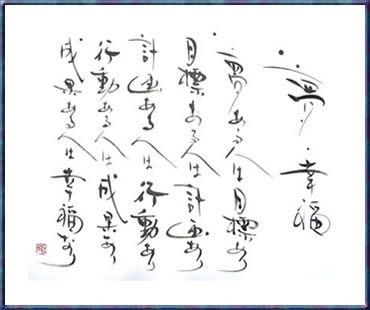 夢・幸福
夢ある人は目標あり
目標ある人は計画あり
計画ある人は行動あり
行動ある人は成果あり
成果ある人は幸福あり